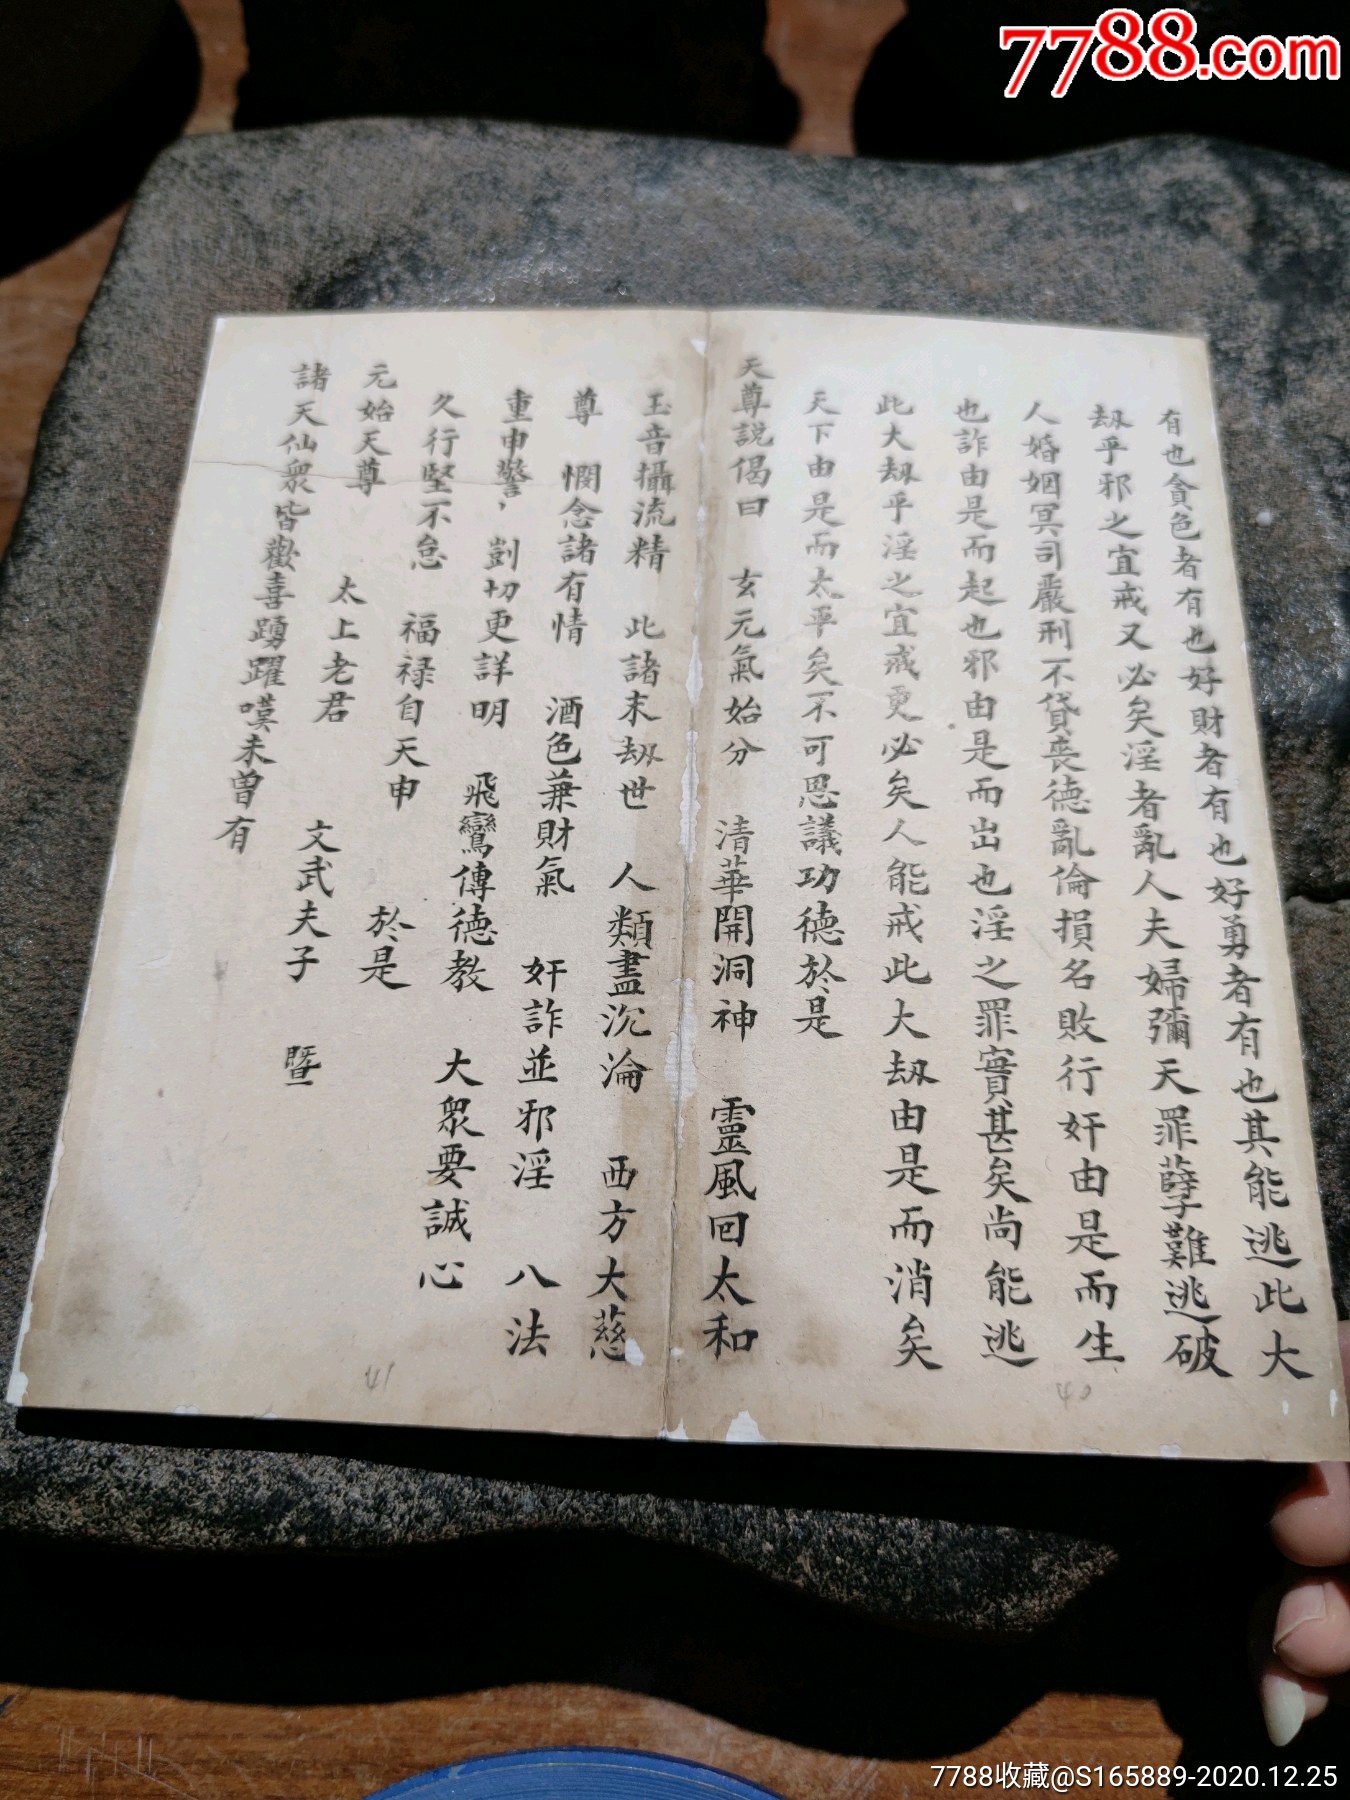 7788.com
有也貪色者有也好財者有也好勇者有也其能逃此大
刼乎邪之宜戒又必矣淫者亂人夫婦彌天罪孽難逃破
人婚姻冥司嚴刑不貸喪德亂倫損名敗行奸由是而生
也詐由是而起也邪由是而出也淫之罪實甚矣尚能逃
此大刼乎淫之宜戒更必矣人能戒此大刼由是而消矣
天下由是而太平矣不可思議功德於是
天尊說偈曰 玄元氣始分 清華開洞神 靈風回太和
玉音攝流精 此諸末刼世 人類盡沉淪 西方大慈
尊 憫念諸有情 酒色兼財氣 奸詐並邪淫 八法
重申警， 剴切更詳明 飛鸞傳德教 大衆要誠心
久行堅不怠 福禄自天申 於是
元始天尊 太上老君 文武夫子 暨
諸天仙衆皆歡喜踴躍嘆未曾有
40
41
7788收藏@S165889-2020.12.25